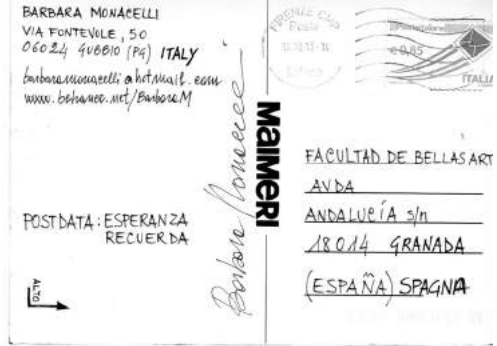 BARBARA MONACELLI
VIA FONTEVOLE, 50
06024 GUBBIO (PG) ITALY
barbaramonacelli@hotmail.com
www.behance.net/BarbaraM
POSTDATA: ESPERANZA
RECUERDA
ALTO
Barbara Monacelli
MAIMERI
FIRENZE CMP
Posta
€0,85
ITALIA
FACULTAD DE BELLAS ART
AVDA
ANDALUCÍA s/n
18014 GRANADA
(ESPAÑA) SPAGNA